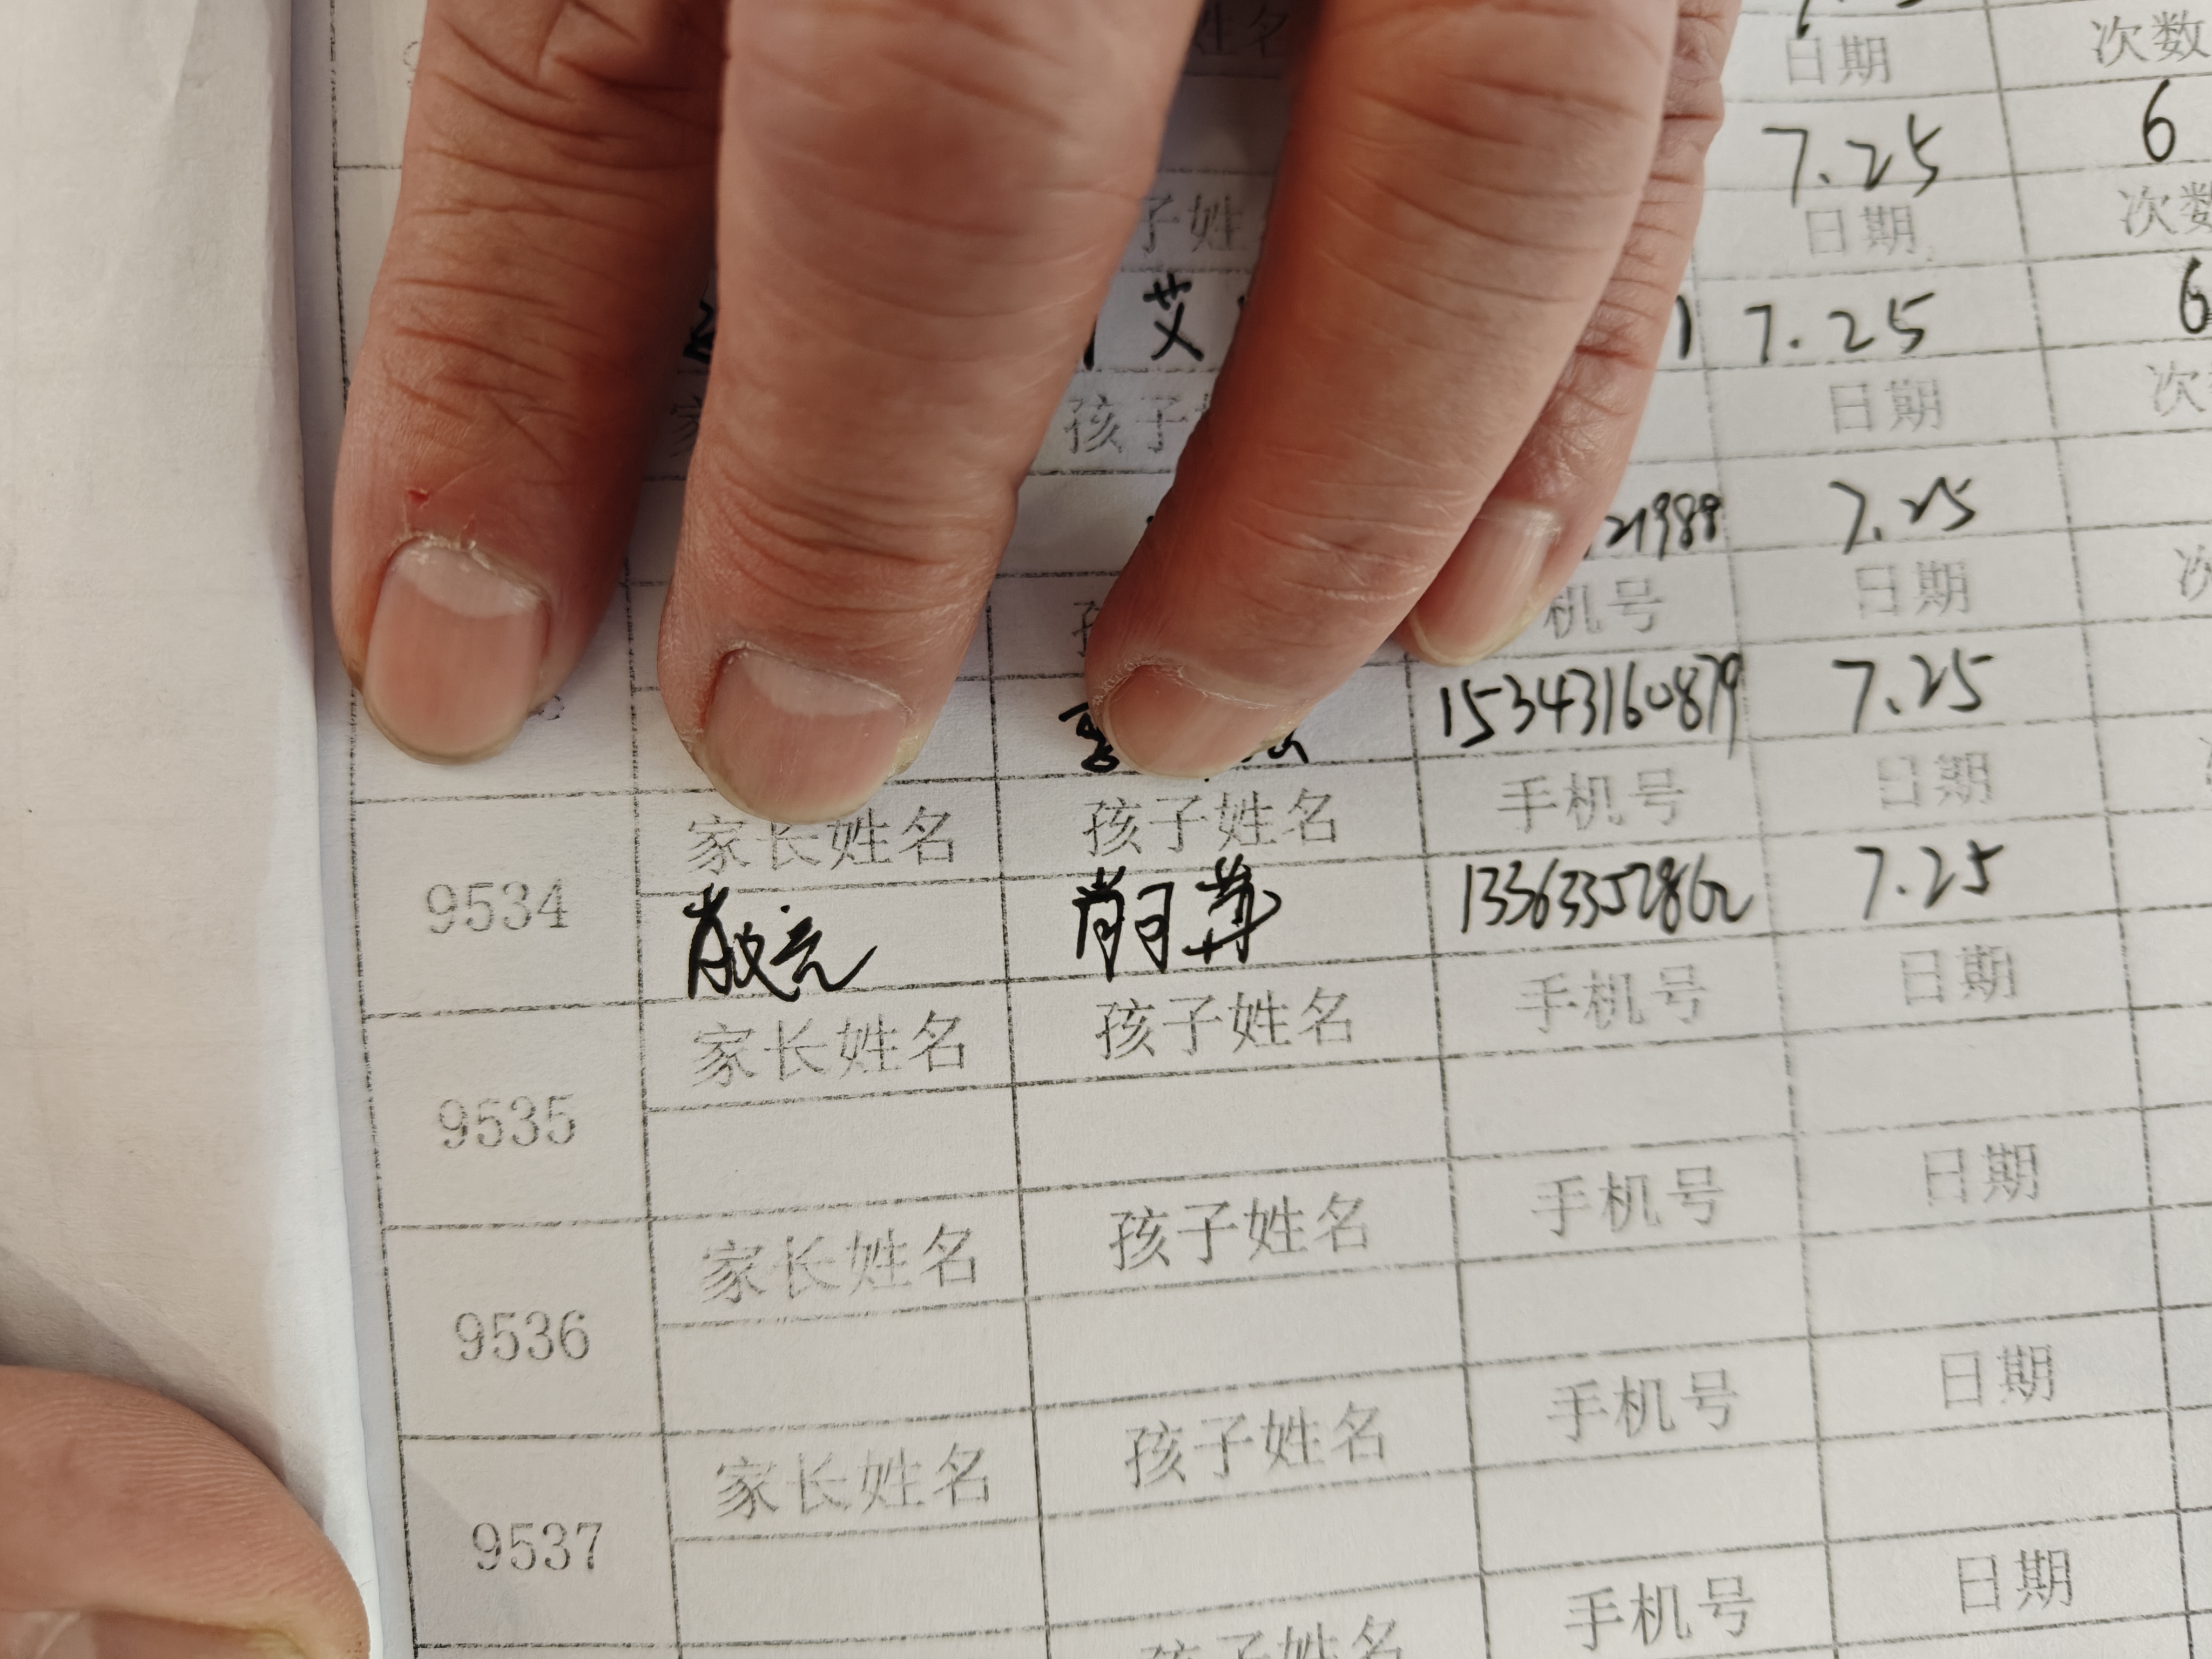 日期 次数
7.25 6
子姓 日期 次数
艾 1 7.25 6
孩子 日期 次
21989 7.25
机号 日期
15343160879 7.25
家长姓名 孩子姓名 手机号 日期
9534 肖 肖 13363352862 7.25
家长姓名 孩子姓名 手机号 日期
9535
家长姓名 孩子姓名 手机号 日期
9536
家长姓名 孩子姓名 手机号 日期
9537
孩子姓名 手机号 日期